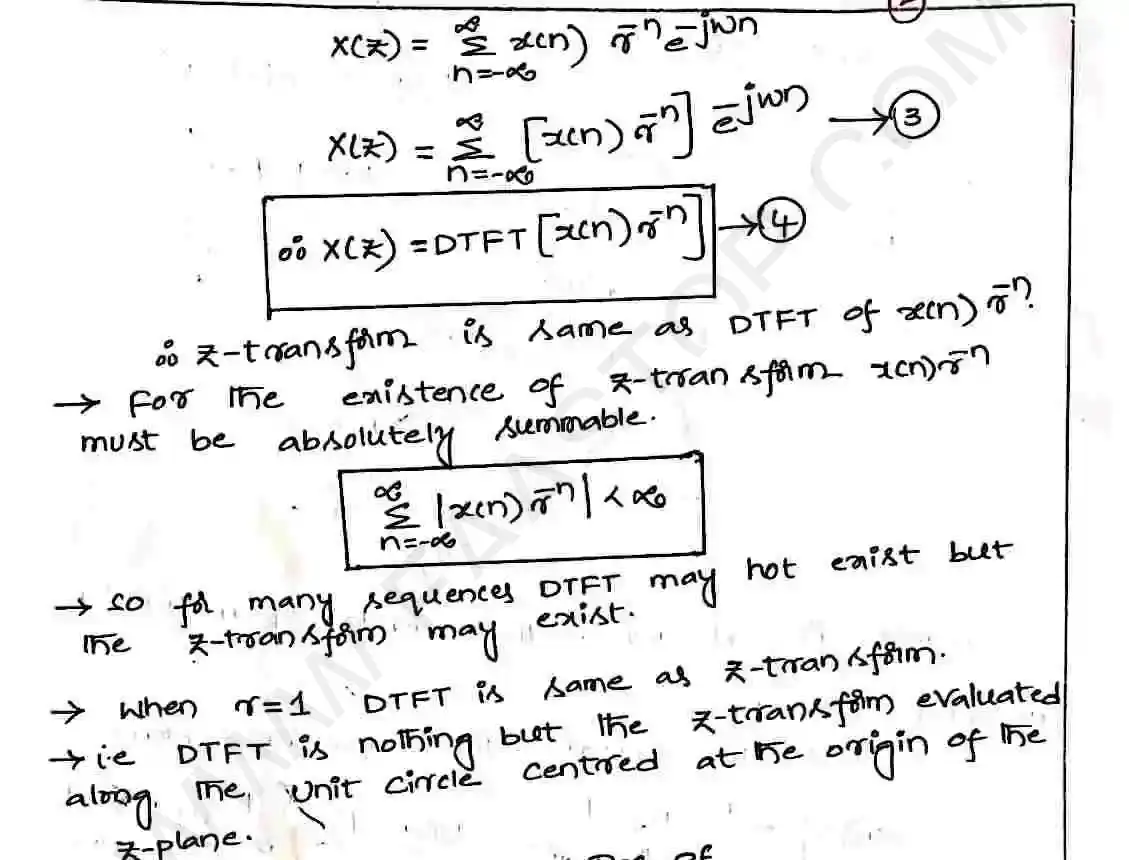 2
X(z) = ∞ Σ n=-∞ x(n) r^-n e^-jωn
X(z) = ∞ Σ n=-∞ [x(n) r^-n] e^-jωn → 3
∴ X(z) = DTFT [x(n) r^-n] → 4
∴ z-transform is same as DTFT of x(n) r^-n.
→ For the existence of z-transform x(n) r^-n
must be absolutely summable.
∞ Σ n=-∞ |x(n) r^-n| < ∞
→ so for many sequences DTFT may not exist but
the z-transform may exist.
→ When r=1 DTFT is same as z-transform.
→ i.e DTFT is nothing but the z-transform evaluated
along the unit circle centred at the origin of the
z-plane.